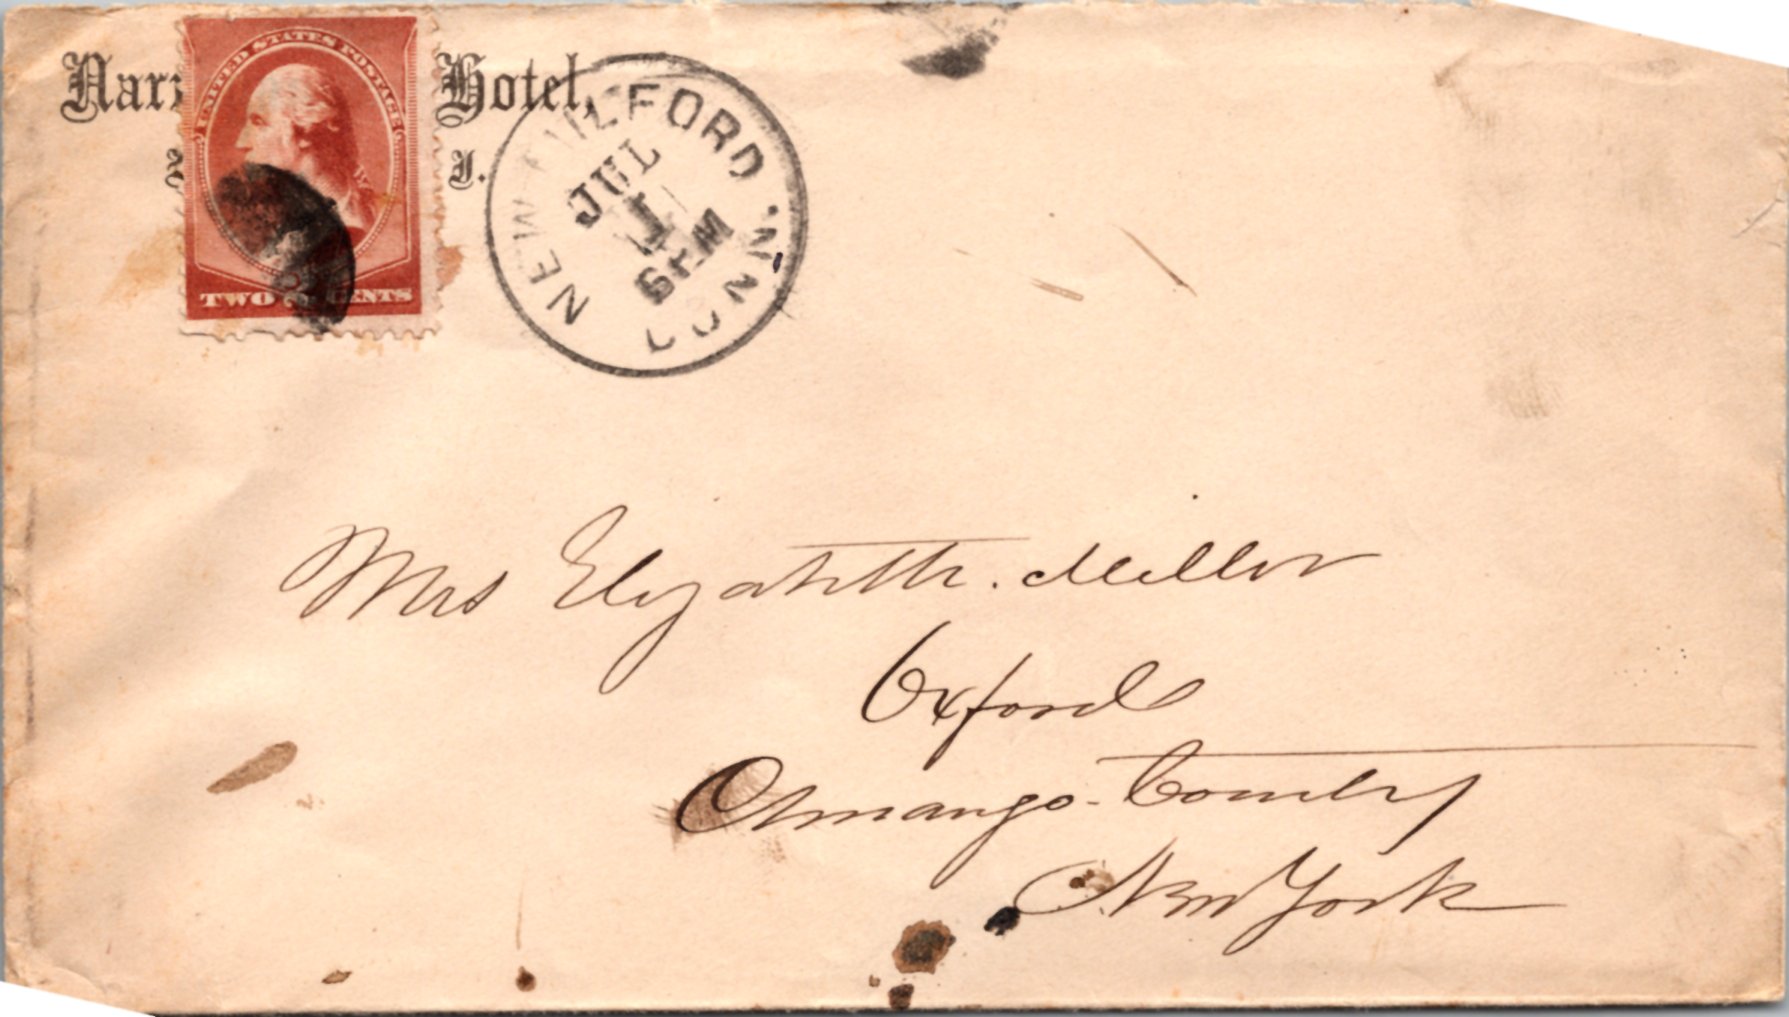 Narr Hotel,
I.
UNITED STATES POSTAGE
TWO CENTS
NEW MILFORD CONN.
JUL
6 PM
Mrs Elizabeth. Miller
Oxford
Chenango County
New York